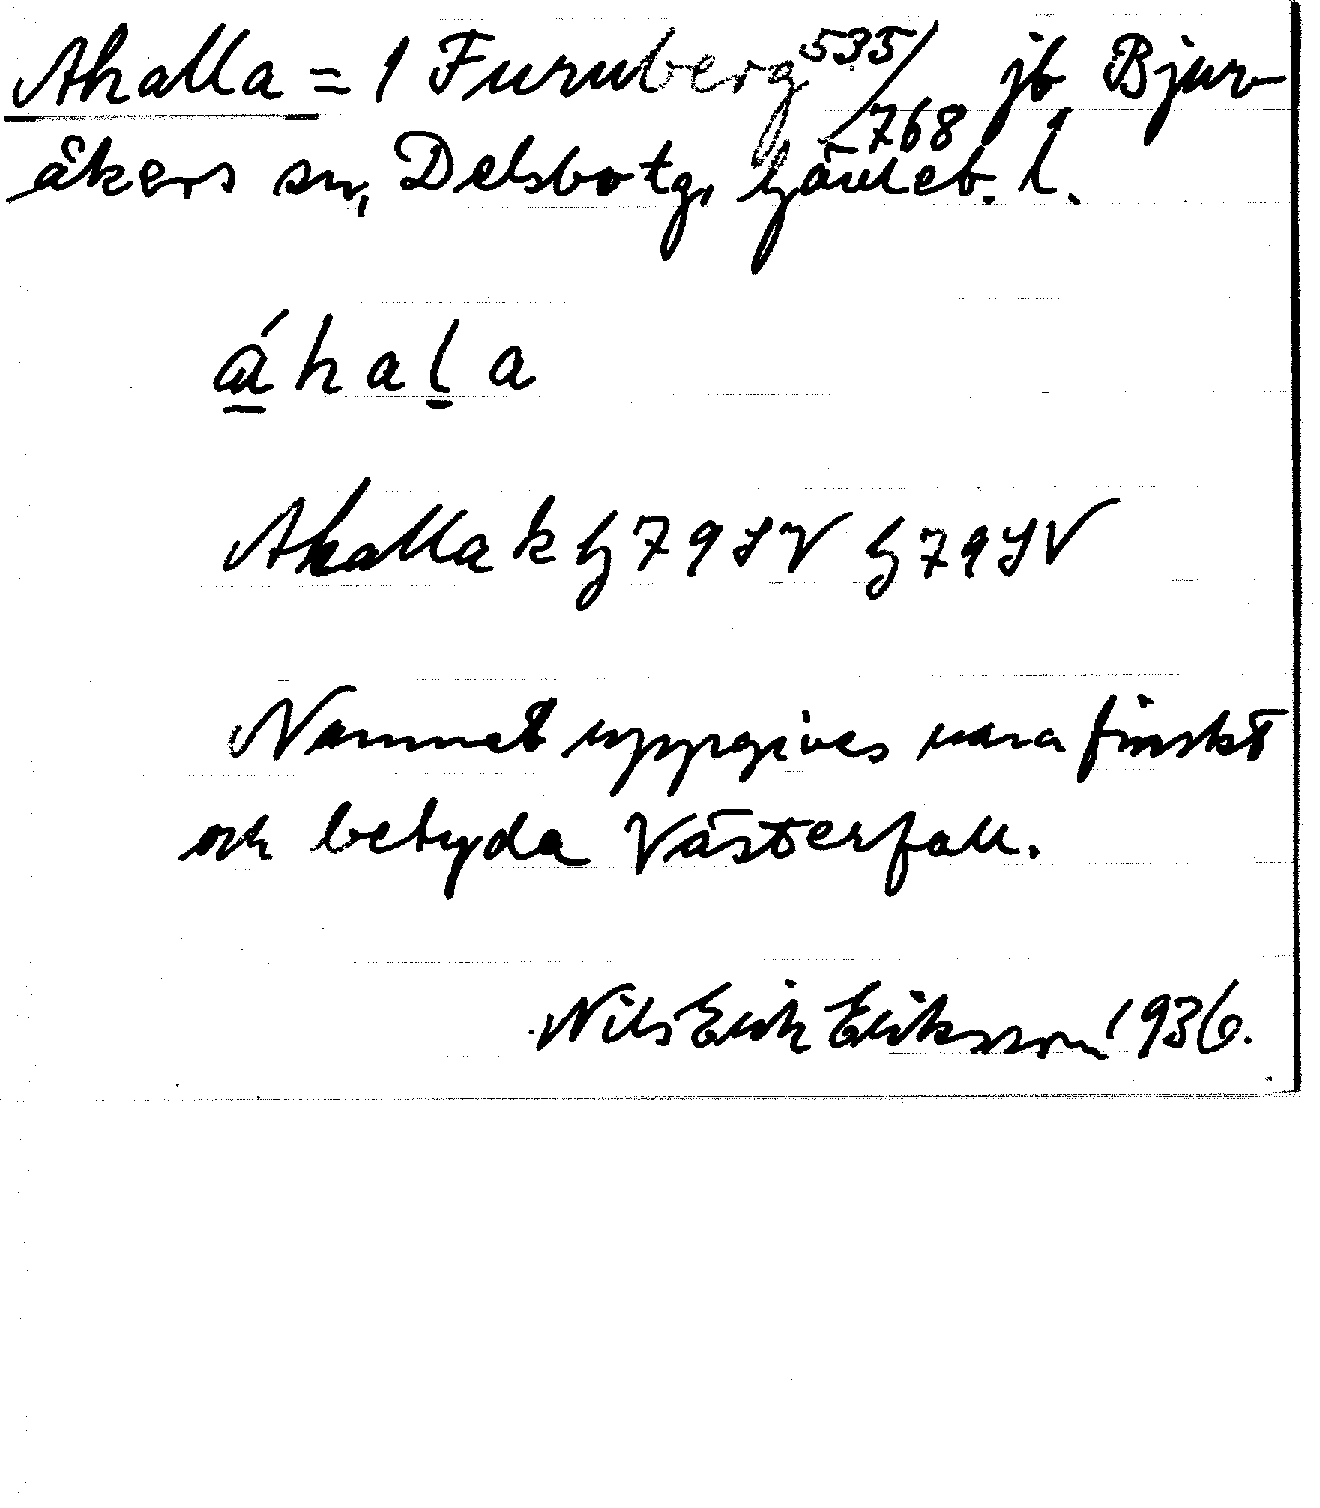 Ahalla = 1 Furuberg 535/768 jb Bjur-
åkers sn, Delsbo tg, Gävleb. l.
áhala
Ahalla k G 79 SV G 79 SV
Namnet uppgives vara finskt
och betyda Västerfall.
Nils Erik Eriksson 1936.